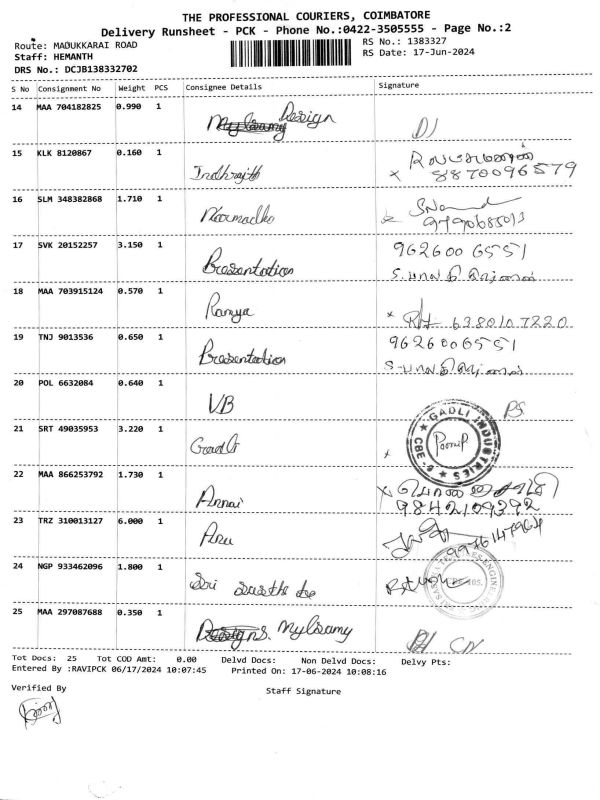 THE PROFESSIONAL COURIERS, COIMBATORE
Delivery Runsheet - PCK - Phone No.:0422-3505555 - Page No.:2
Route: MADUKKARAI ROAD
RS No.: 1383327
Staff: HEMANTH
RS Date: 17-Jun-2024
DRS No.: DCJB138332702
S No Consignment No Weight PCS Consignee Details Signature
14 MAA 704182825 0.990 1 Design
15 KLK 8120867 0.160 1 Indhrajith 8870096579
16 SLM 348382868 1.710 1 9790685013
17 SVK 20152257 3.150 1 Presentation 9626006551
18 MAA 703915124 0.570 1 Ramya 6380107220
19 TNJ 9013536 0.650 1 Presentation 9626006551
20 POL 6632084 0.640 1 VB
21 SRT 49035953 3.220 1 GADLI INDUSTRIES CBE-6
22 MAA 866253792 1.730 1 Annai 9842109392
23 TRZ 310013127 6.000 1 Anu 9976147964
24 NGP 933462096 1.800 1 Sri
25 MAA 297087688 0.350 1 Mylsamy
Tot Docs: 25 Tot COD Amt: 0.00 Delvd Docs: Non Delvd Docs: Delvy Pts:
Entered By :RAVIPCK 06/17/2024 10:07:45 Printed On: 17-06-2024 10:08:16
Verified By
Staff Signature